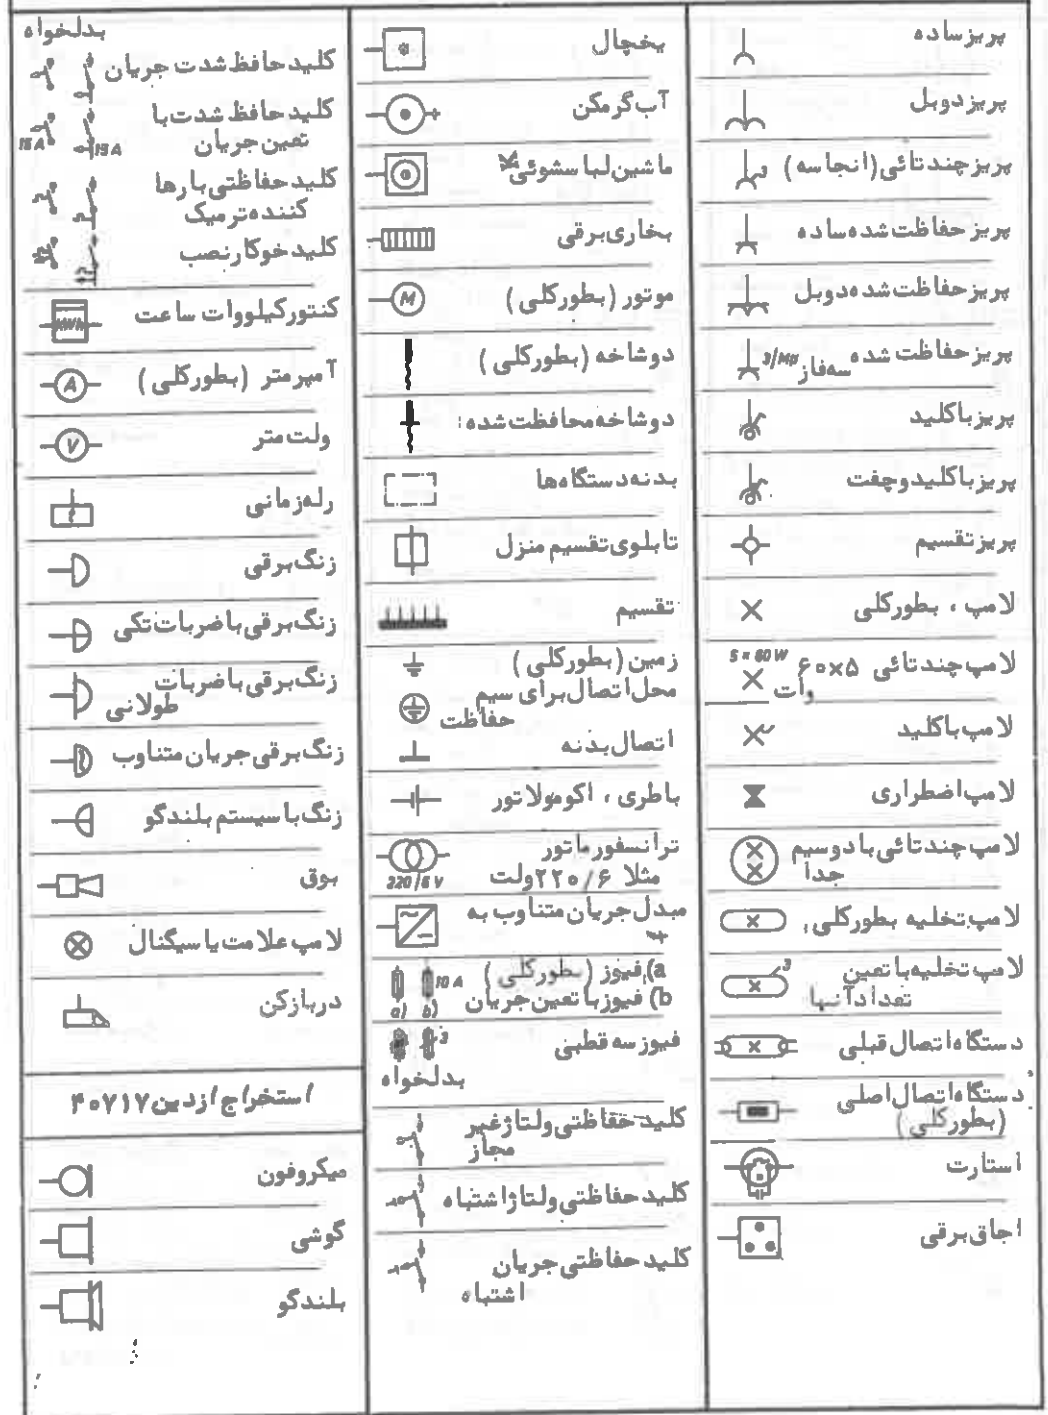 پریز ساده
پریز دوبل
پریز چند تائی (اینجا سه) 3
پریز حفاظت شده ساده
پریز حفاظت شده دوبل
پریز حفاظت شده
سه فاز 3/Mp
پریز با کلید
پریز با کلید و جفت
پریز تقسیم
لامپ ، بطور کلی
لامپ چند تائی ۵×۶۰ 5×60W
وات
لامپ با کلید
لامپ اضطراری
لامپ چند تائی با دو سیم
جدا
لامپ تخلیه بطور کلی
لامپ تخلیه با تعین 3
تعداد آنها
دستگاه اتصال قبلی
دستگاه اتصال اصلی
(بطور کلی)
استارت
اجاق برقی
یخچال
آب گرمکن
ماشین لباسشوئی
بخاری برقی
موتور (بطور کلی) M
دوشاخه (بطور کلی)
دوشاخه محافظت شده:
بدنه دستگاه ها
تابلوی تقسیم منزل
تقسیم
زمین (بطور کلی)
محل اتصال برای سیم
حفاظت
اتصال بدنه
باطری ، اکومولاتور
ترانسفورماتور
مثلا ۲۲۰/۶ ولت 220/6 V
مبدل جریان متناوب به
a) فیوز (بطور کلی)
b) فیوز با تعین جریان 10 A
a) b)
فیوز سه قطبی 3
بدلخواه
کلید حفاظتی ولتاژ غیر
مجاز
کلید حفاظتی ولتاژ اشتباه
کلید حفاظتی جریان
اشتباه
بدلخواه
کلید حافظ شدت جریان
کلید حافظ شدت با
تعین جریان 15A 15A
کلید حفاظتی بار رها
کننده ترمیک
کلید خوکار نصب
کنتور کیلووات ساعت KWh
آمپر متر (بطور کلی) A
ولت متر V
رله زمانی
زنگ برقی
زنگ برقی با ضربات تکی
زنگ برقی با ضربات
طولانی
زنگ برقی جریان متناوب
زنگ با سیستم بلندگو
بوق
لامپ علامت یا سیگنال
در بازکن
استخراج از دین ۴۰۷۱۷
میکروفون
گوشی
بلندگو